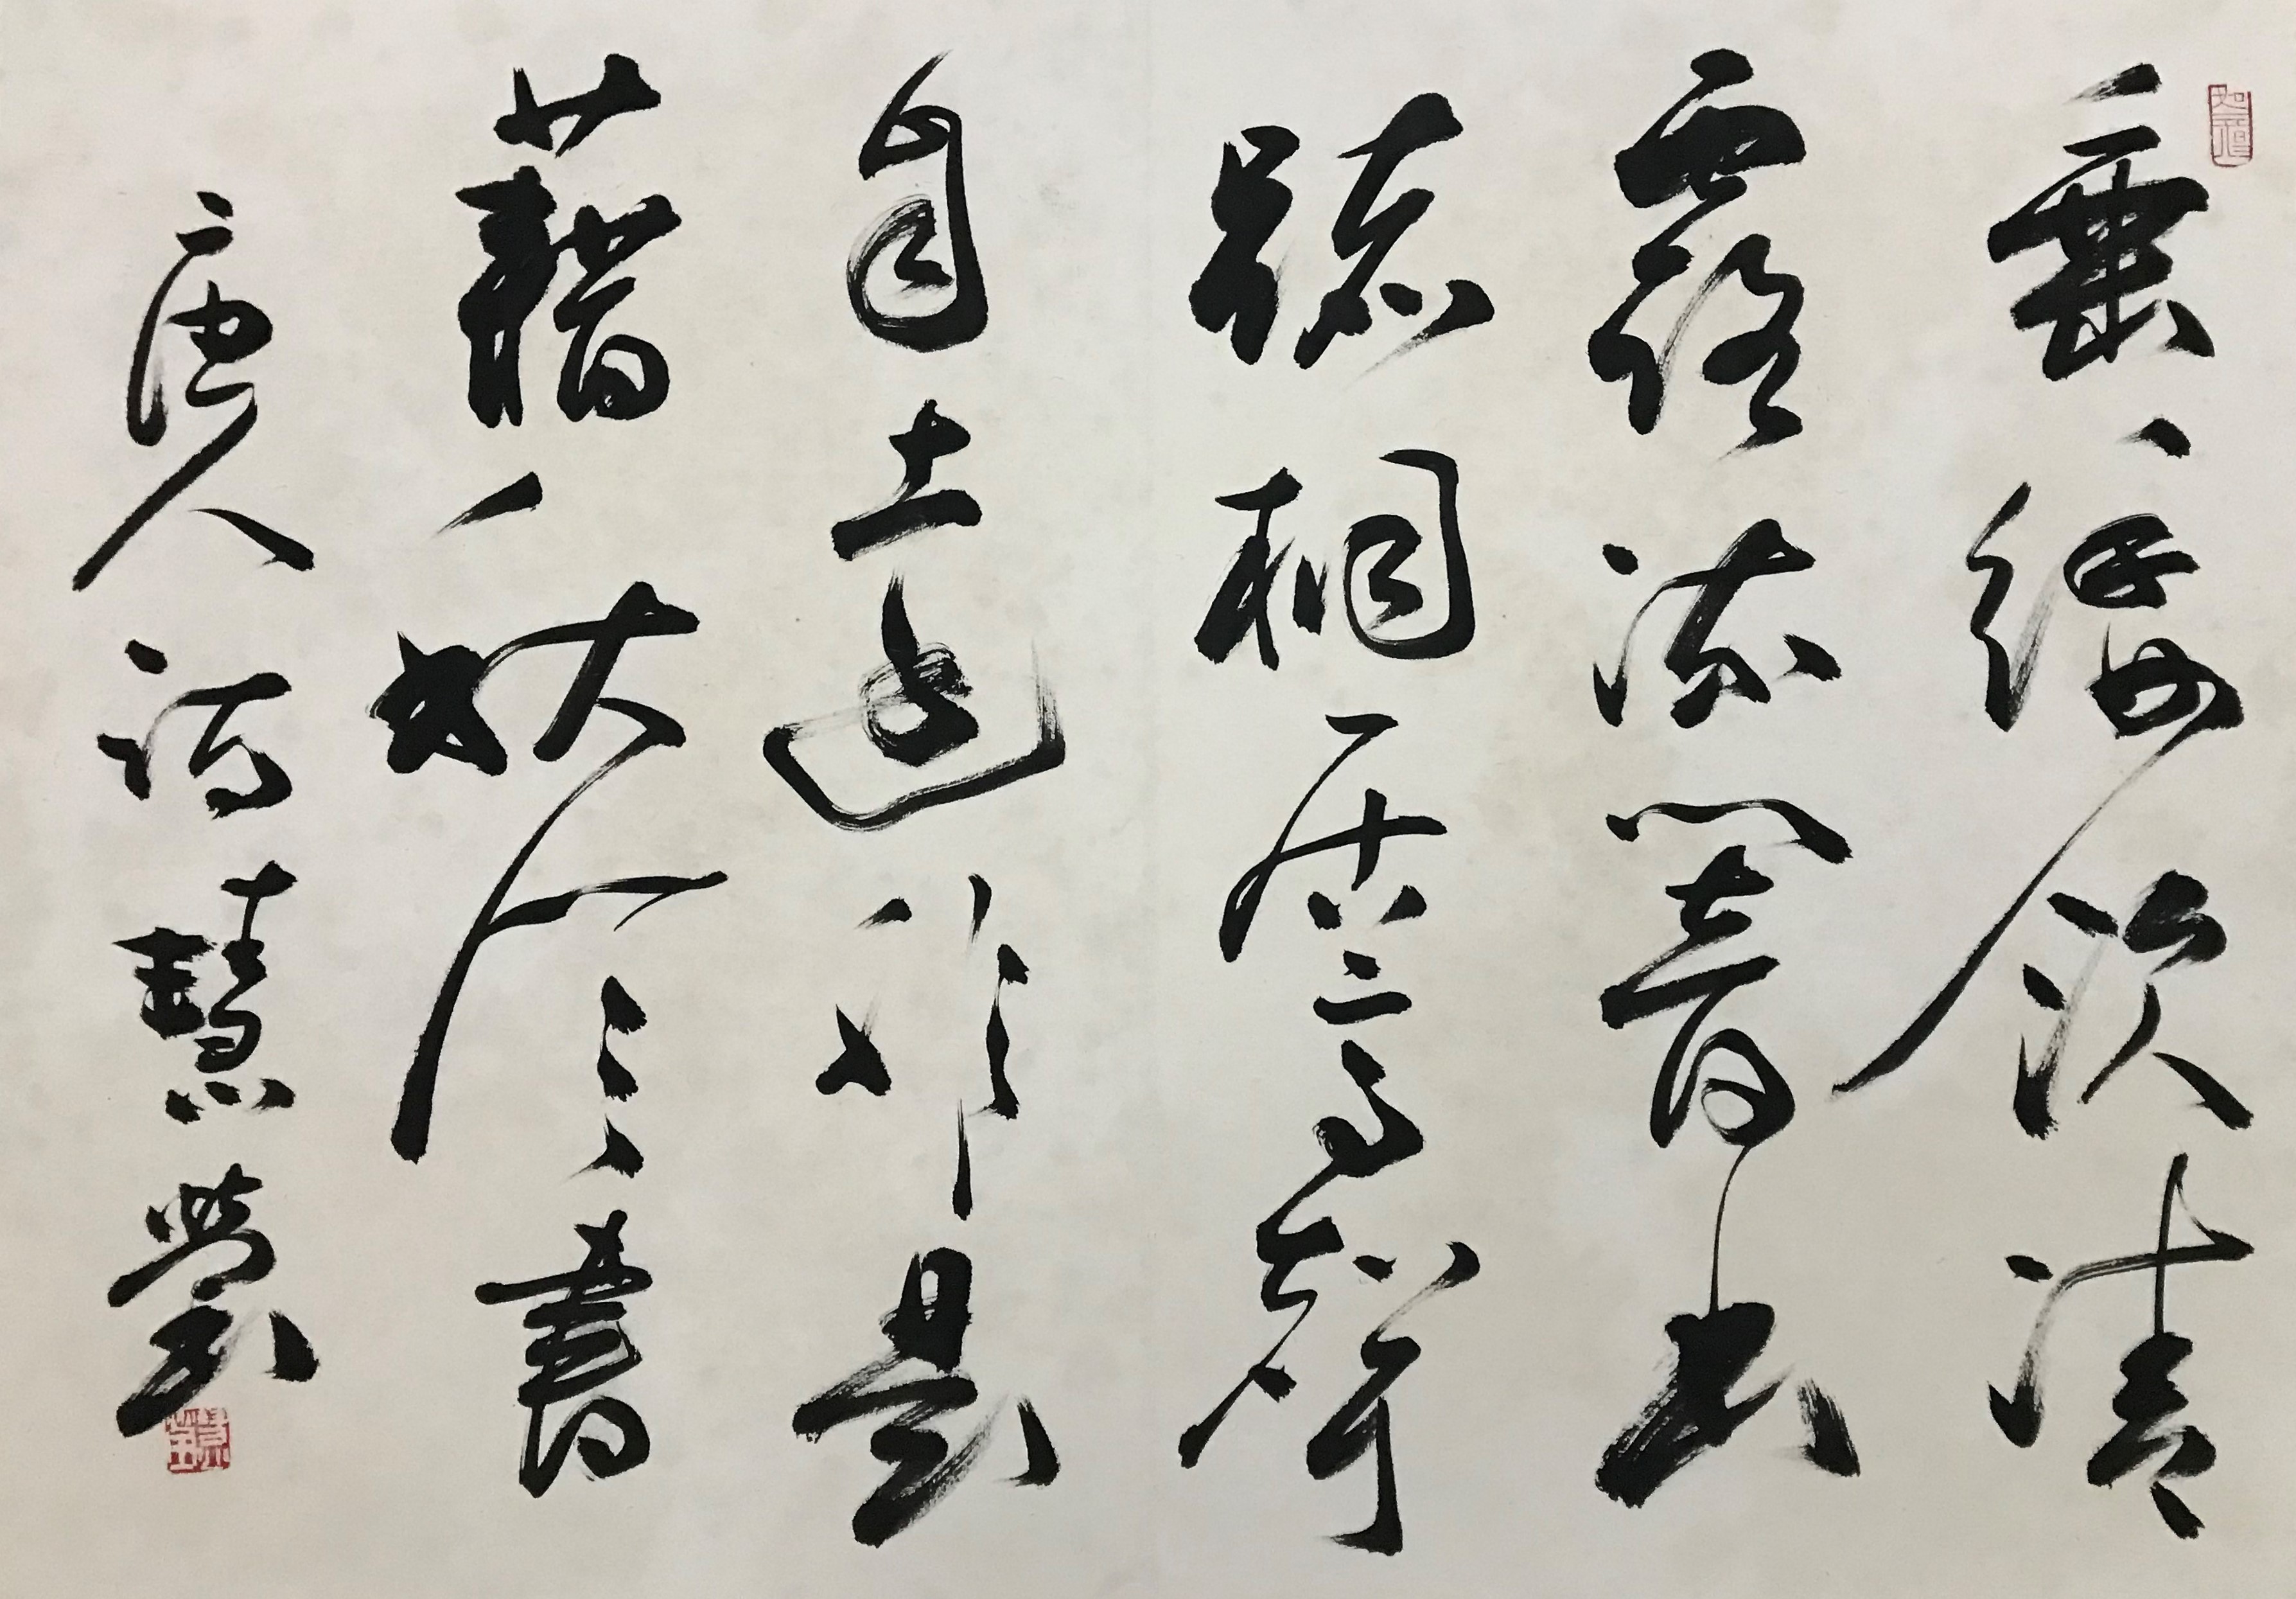 垂緌飲清
露流響出
疏桐居高聲
自遠非是
藉秋風書
唐人詩慧瑩